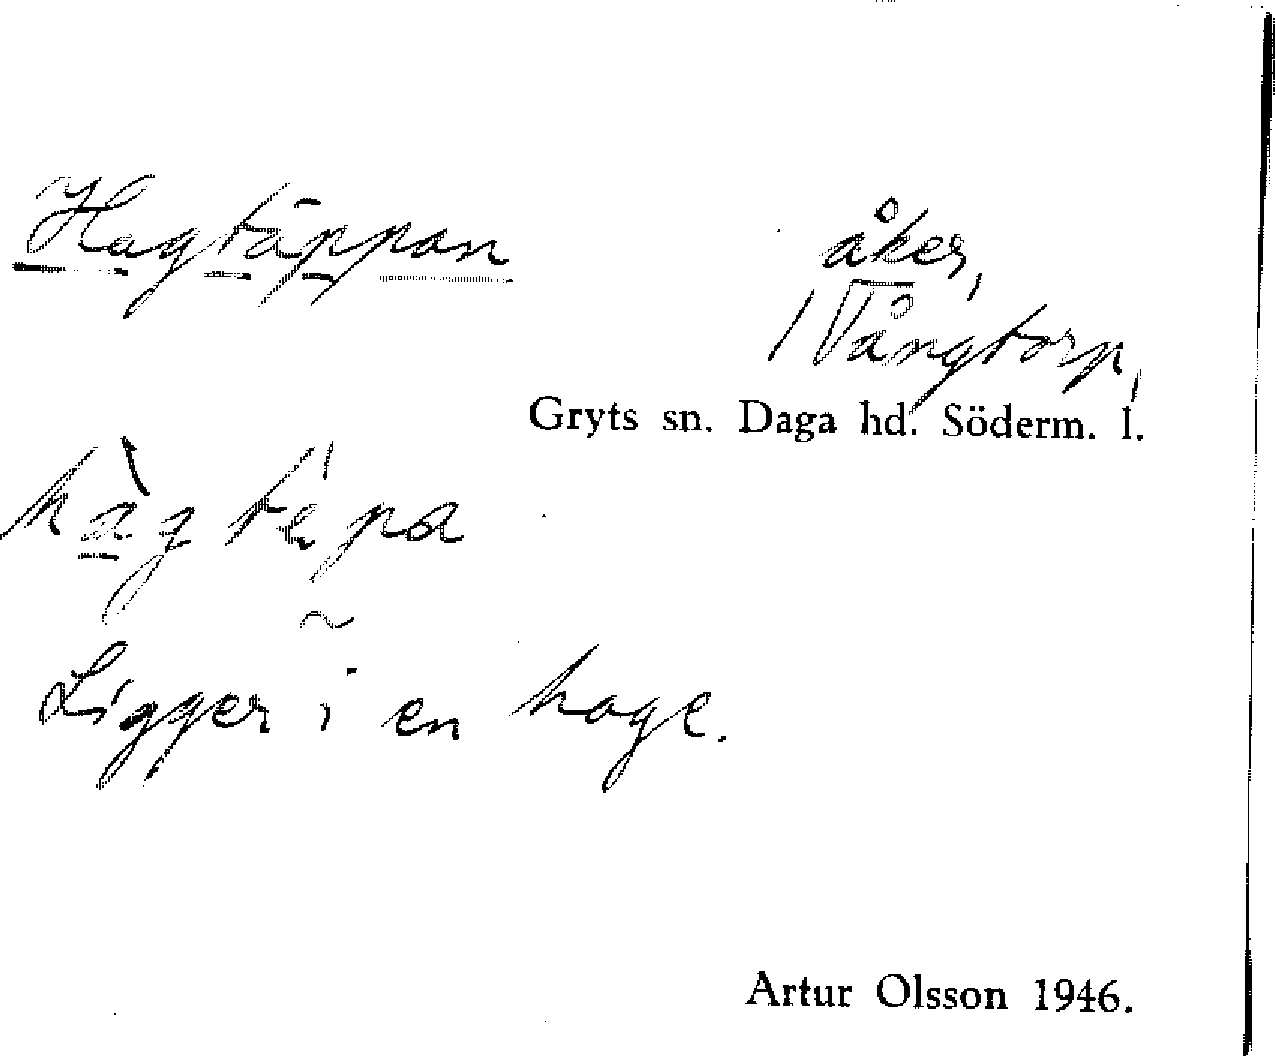 Hagtäppan
åker,
Vångtorp,
Gryts sn. Daga hd. Söderm. l.
Ligger i en hage.
Artur Olsson 1946.